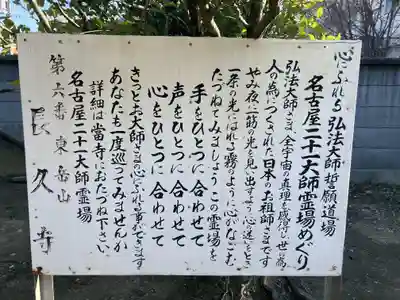 心にふれる弘法大師誓願道場
名古屋二十一大師霊場めぐり
弘法大師さま、全宇宙の真理を感得し世の為
人の為につくされた日本のお祖師さまです
やみ夜に一筋の光を見い出すよう、心迷うとき
一条の光にはれる霧のように心がなごむ
たづねてみましょうこの霊場を
手をひとつに合わせて
声をひとつに合わせて
心をひとつに合わせて
きっとお大師さまの心にふれる事ができます
あなたも一度巡ってみませんか
詳細は當寺におたづね下さい。
名古屋二十一大師霊場
第六番 東岳山
長久寺